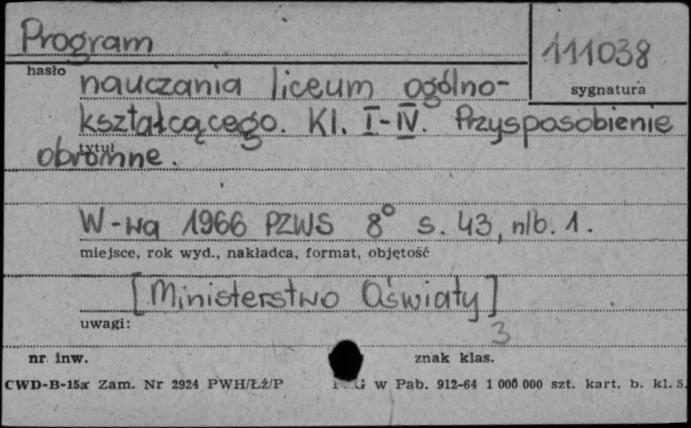 Program
111038
hasło
sygnatura
nauczania liceum ogólno-
kształcącego. Kl. I-IV. Przysposobienie
tytuł
obronne.
W-wa 1966 PZWS 8° s. 43, nlb. 1.
miejsce, rok wyd., nakładca, format, objętość
[Ministerstwo Oświaty]
uwagi:
3
nr inw.
znak klas.
CWD-B-15a Zam. Nr 2924 PWH/Łź/P
G w Pab. 912-64 1 000 000 szt. kart. b. kl. 5.